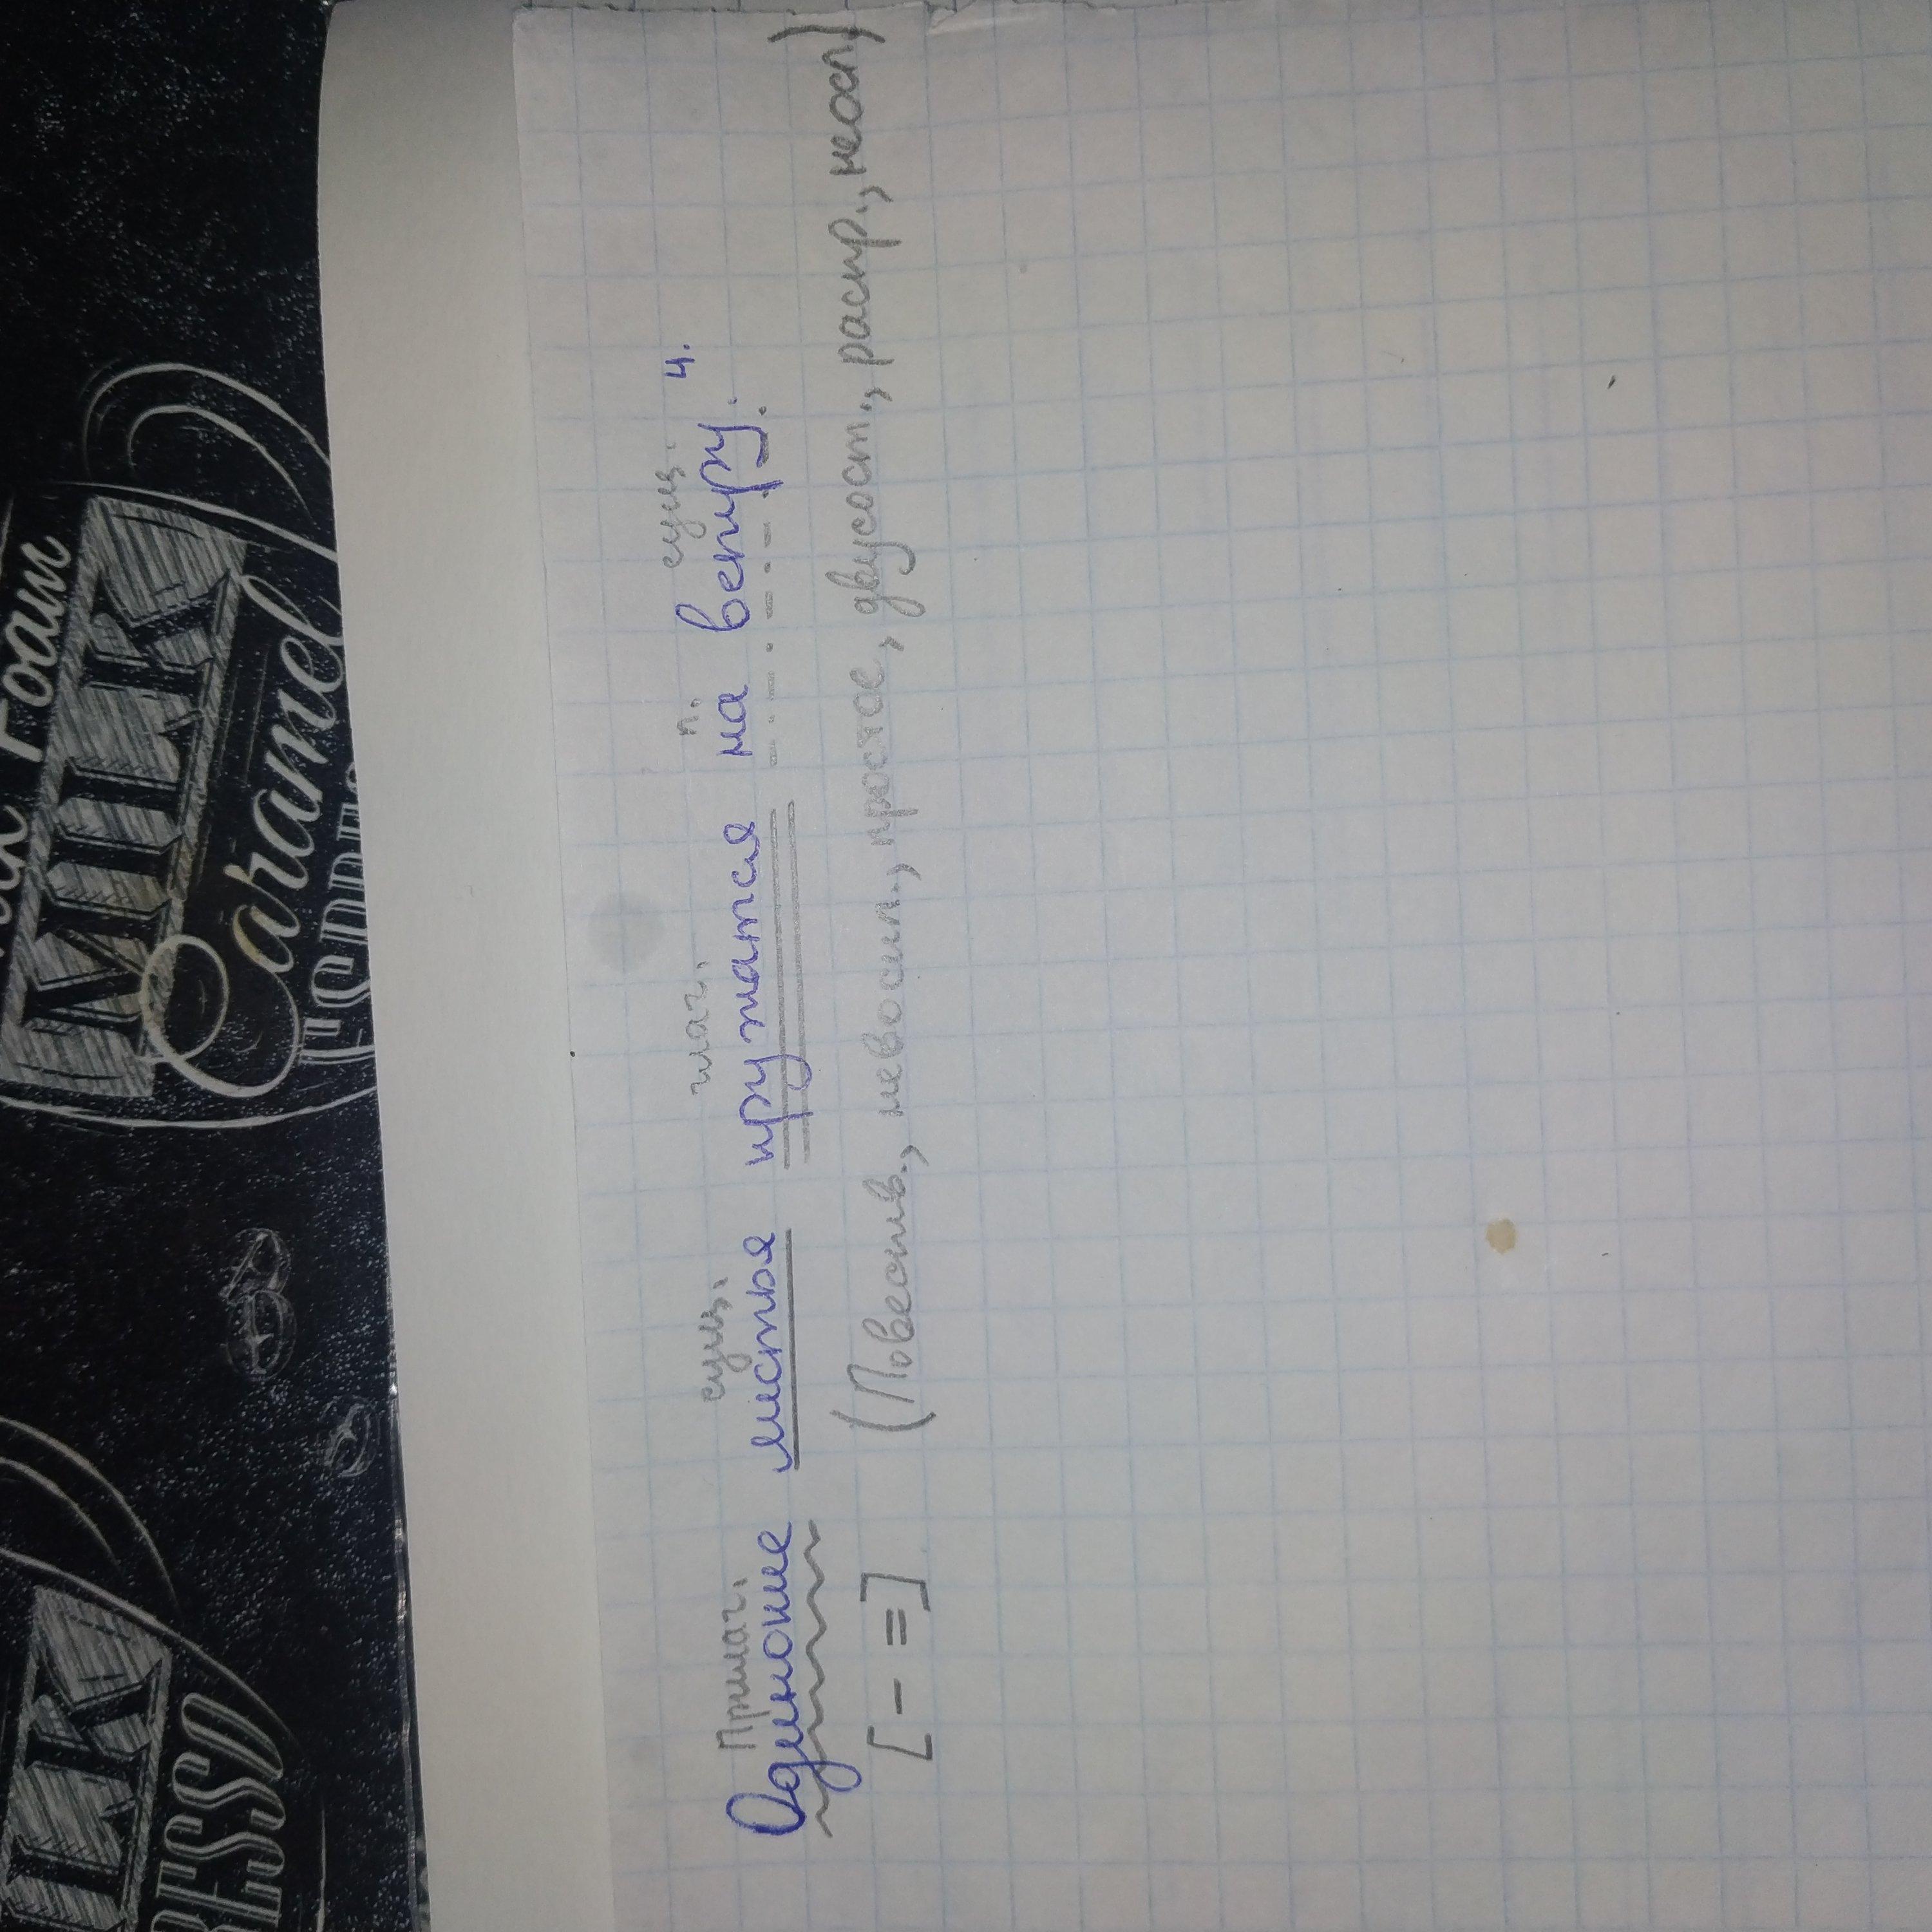 Прилаг. сущ. глаг. п. сущ.
Одинокие листья кружатся на ветру. 4.
[- =] (Повеств., невоскл., простое, двусост., распр., неосл.)
MILK
Caramel
Foam